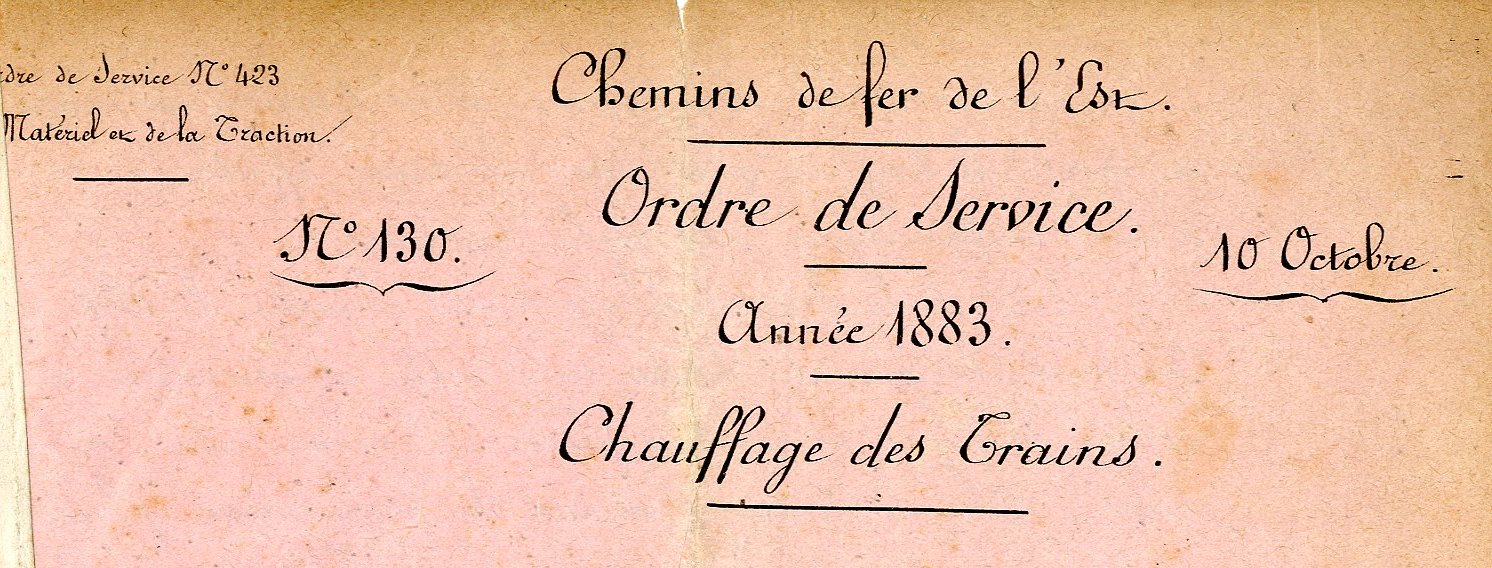 Ordre de Service N° 423
Matériel et de la Traction.
Chemins de fer de l'Est.
Ordre de Service.
N° 130.
10 Octobre.
Année 1883.
Chauffage des Trains.